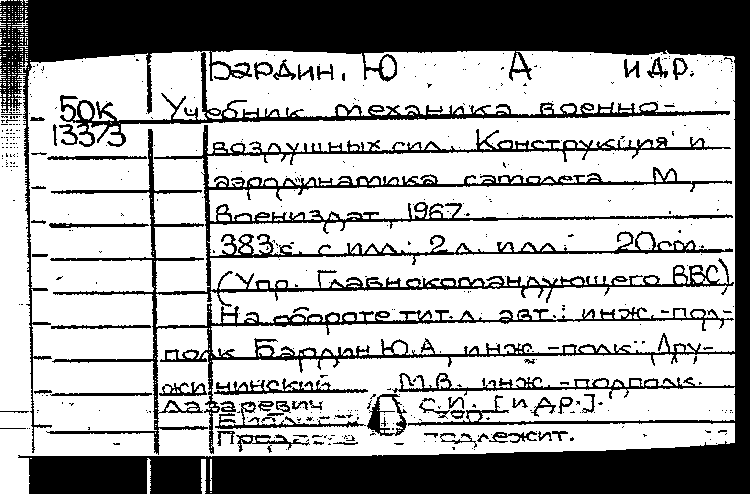 Бардин, Ю А и др.
50К
13373
Учебник механика военно-
воздушных сил. Конструкция и
аэродинамика самолета М.,
Воениздат, 1967.
383 с. с илл.; 2 л. илл. 20 см.
(Упр. Главнокомандующего ВВС)
На обороте тит. л. авт.: инж.-под-
полк Бардин Ю.А, инж-полк. Дру-
жининский М.В., инж.-подполк.
Лазаревич С.И. [и др.].